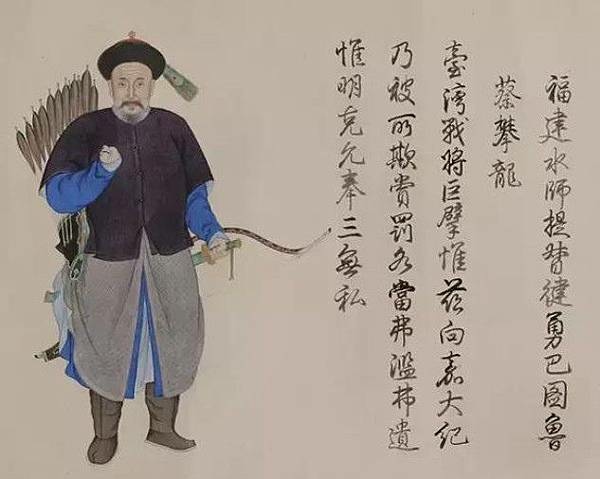 福建水師提督徤勇巴圖魯
蔡攀龍
臺灣戰將巨擘惟茲向嘉大紀
乃被所欺賞罰各當弗濫弗遺
惟明克允奉三無私